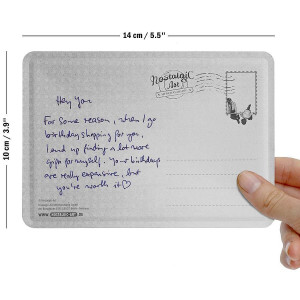 14 cm / 5.5"
10 cm / 3.9"
Nostalgic
Art
Hey You
For some reason, when I go
birthday shopping for you,
I end up finding a lot more
gifts for myself. Your birthdays
are really expensive, but
you're worth it♡